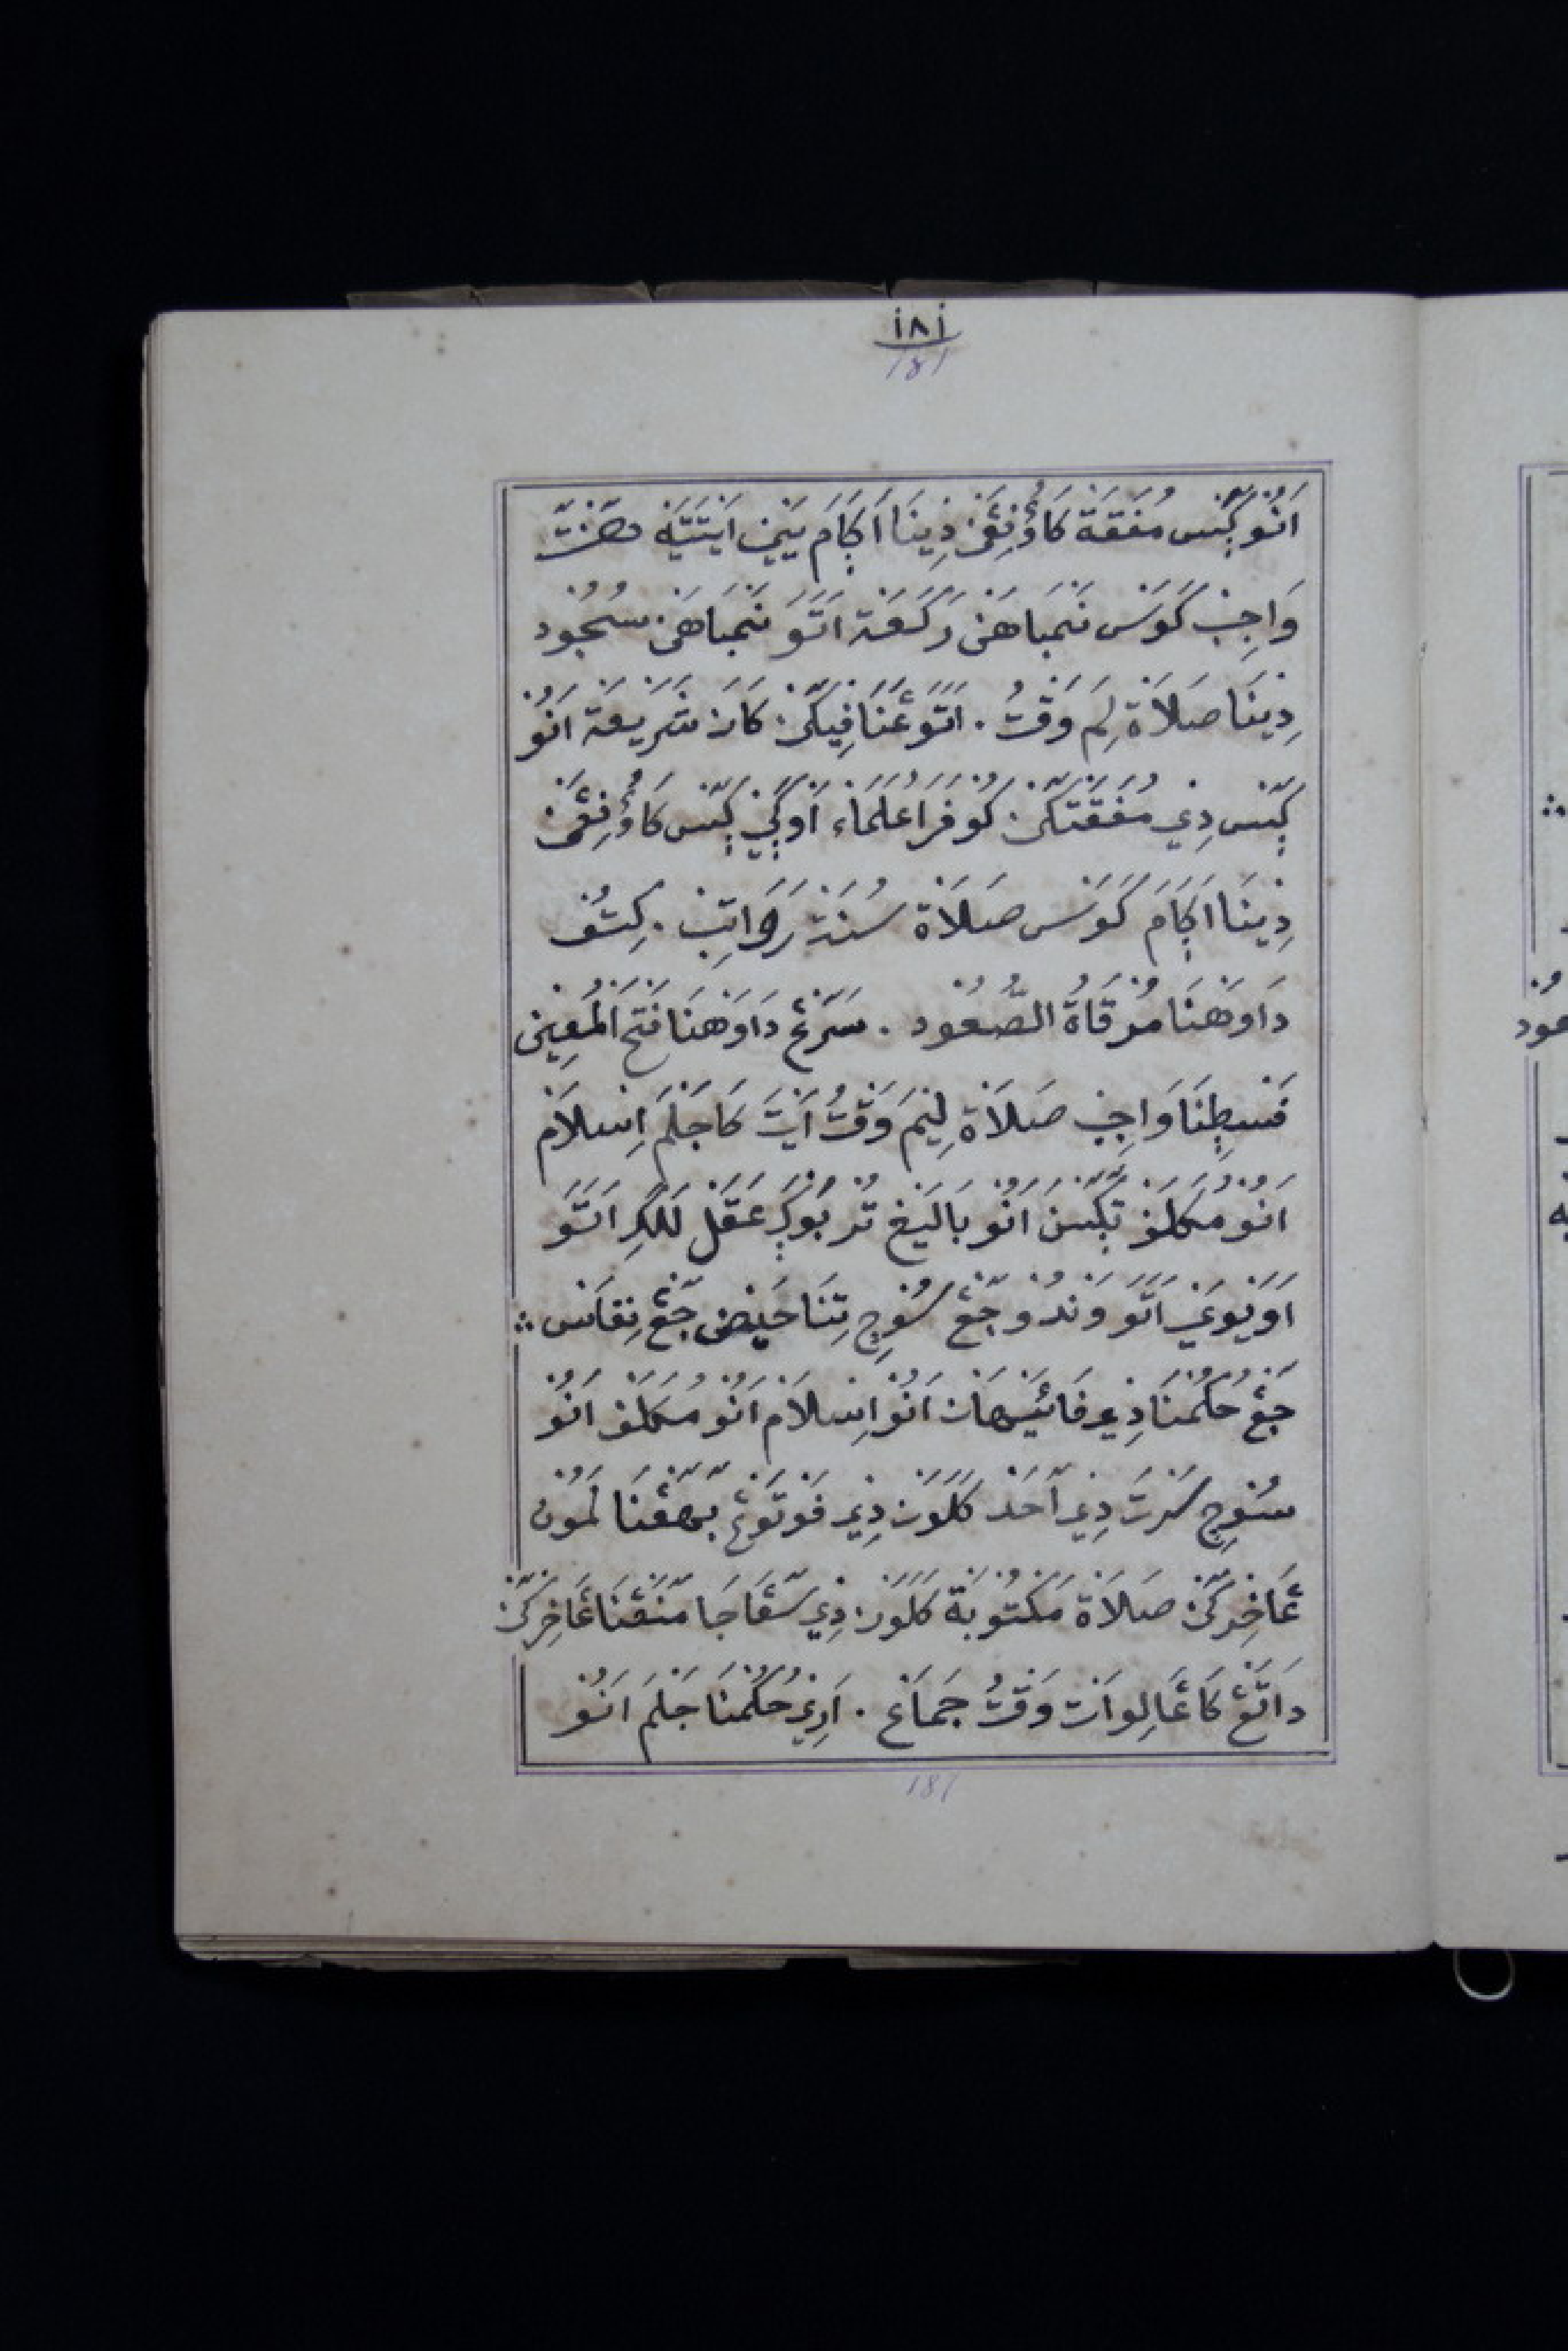 ١٨١
181
اَنُوْ كٟڠَّسْ مُفَقَةْ كَاوُنِڠَنْ دِيْنَا اَكٟامَ يَيْنْ اَيْتَيَهْ
وَاجِبْ كَوَسْ نَمْبَاهَنْ رَكَعَةْ اَتَوَ نَمْبَاهَنْ سُجُوْد
دِيْنَا صَلَاةْ لِمَ وَقْتُ. اَتَوَ عَنَافِيْكَنْ كَانَ شَرِيْعَةْ اَنُوْ
كٟڠَّسْ دِيْ مُفَقَتْكَنْ كُوْ فَرَا عُلَمَاءْ اَوْكٟيْ كٟڠَّسْ كَاوُنِڠَنْ
دِيْنَا اَكٟامَ كَوَسْ صَلَاةْ سُنَةْ رَوَاتِبْ. كِتُفْ
دَاوَهْنَا مُرْقَاةُ الصُّعُوْد. سَرْڠْ دَاوَهْنَا فَتْحَ الْمُعِيْنْ
فَسْطِنَا وَاجِبْ صَلَاةْ لِيْمَ وَقْتُ اَيْتَ كَا جَلْمَ اِسْلَامْ
اَنُوْ مُكَلَّفْ تٟكَّسْنَ اَنُوْ بَالَيْغْ تُرْ بُوْكٟا عَقَلْ لَلَكِ اَتَوَ
اَوَيْوَيْ اَتَوَ وَنْدُوْ جَڠْ سُوْجِ تِنَا حَيْضْ جَڠْ نِفَاسْ ؞
جَڠْ حُكُمْنَا دِيْ فَائَيْهَانْ اَنُوْ اِسْلَامْ اَنُوْ مُكَلَّفْ اَنُوْ
سُوْجِ سَرْتَ دِيْ اَخَدْ كَلَوَنْ دِيْ فَوْتَوْڠْ لَمُوْن
ڠَاخِرْكَنْ صَلَاةْ مَكْتُوْبَةْ كَلَوَنْ دِيْ سَڠَاجَا مَنَڠْنَا ڠَاخِرْكَنْ
دَاتَڠْ كَا ڠَالِوَاتْ وَقْتُ جَمَاعْ. اَرِيْ حُكُمْنَا جَلْمَ اَنُوْ
181